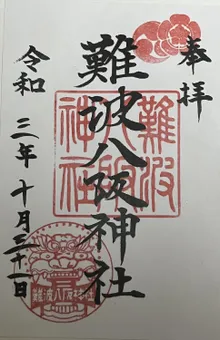 奉拝
難波八阪神社
難波八阪神社
令和三年十月三十一日
難波八阪神社